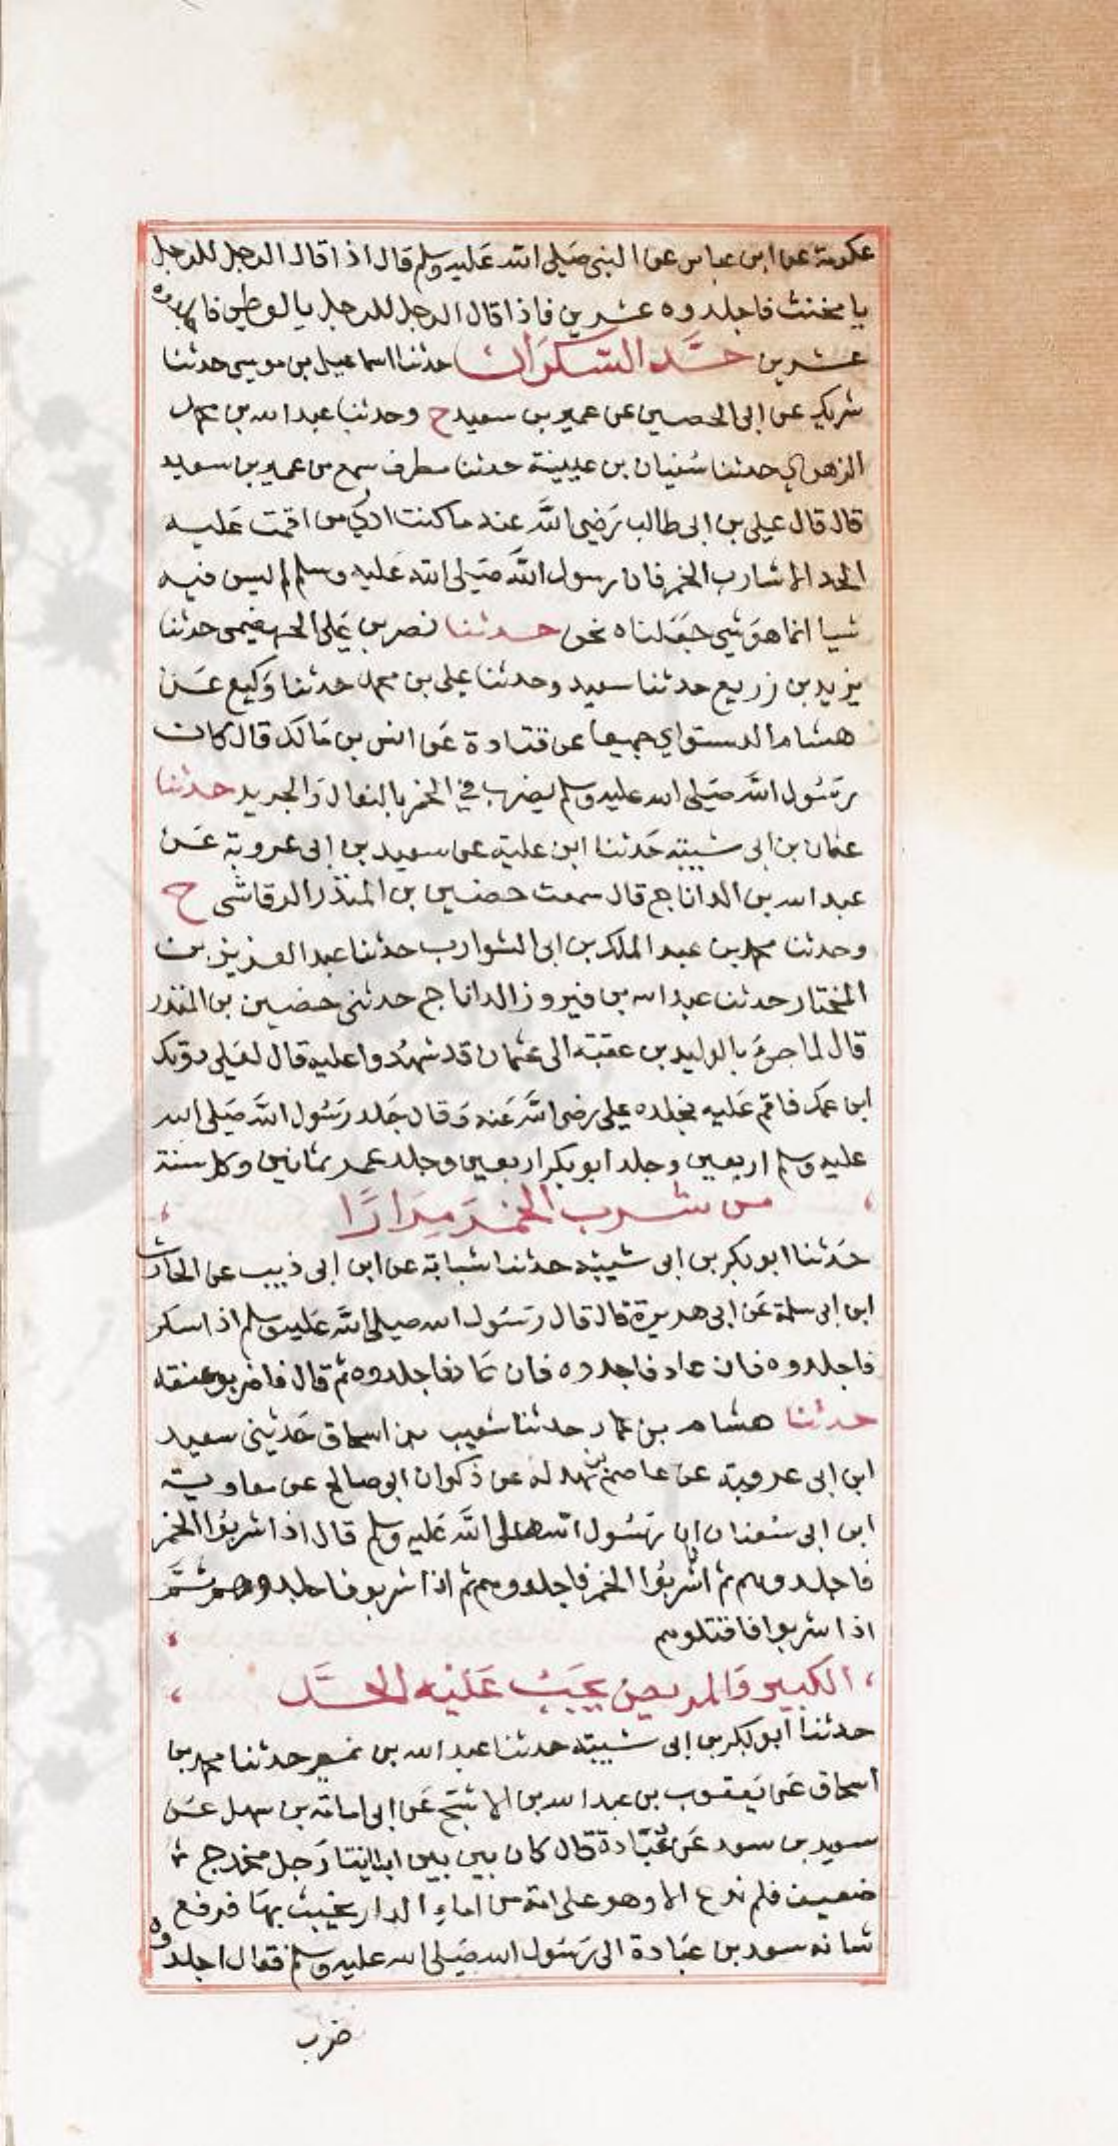 عكرمة عن ابن عباس عن النبي صَلى الله عَليه وسلم قال اذا قال الرجل للرجل
يا مخنث فاجلدوه عشرين فاذا قال الرجل للرجل يا لوطي فاجلدوه
عشرين حَدّ السَّكرَان حدثنا اسماعيل بن موسى حدثنا
شريك عن ابي الحصين عن عمير بن سعيد ح وحدثنا عبد الله بن محمد
الزهري حدثنا سُفيان بن عيينة حدثنا مطرف سمع من عمير بن سعيد
قال قال علي بن ابي طالب رَضي الله عنه ما كنت ادي من اقمت عَليه
الحد الا شارب الخمر فان رسول الله صَلى الله عليه وسلم لم ليس فيه
شيا انما هوَ شي جَعَلناه نحن حدثنا نصر بن عَلي الجهضمي حدثنا
يزيد بن زريع حدثنا سعيد وحدثنا علي بن محمد حدثنا وَكيع عَن
هشام الدستواي جميعا عن قتادة عَن انس بن مَالك قال كان
رَسُول الله صَلى الله عليه وسلم يضرب في الخمر بالنعال وَالجريد حدثنا
عثمان بن ابي شيبَة حَدثنا ابن علية عن سعيد بن ابي عروبة عَن
عبد الله بن الداناج قال سمعت حضين بن المنذر الرقاشي ح
وحدثنا محمد بن عبد الملك بن ابي الشوارب حدثنا عبد العزيز بن
المختار حدثنا عبد الله بن فيروز الداناج حدثني حضين بن المنذر
قال لما جيء بالوليد بن عقبة الى عثمان قد شهدُوا عليه قال لعَلي دونك
ابن عمك فاقم عَليه فجلده علي رضي الله عَنه وَقال جَلد رَسُول الله صَلى الله
عليه وسلم اربعين وجلد ابو بكر اربعين وجلد عمر ثمانين وكل سنة
من شرب الخمرَ مِرَارًا
حَدثنا ابو بكر بن ابي شيبَة حدثنا شبابة عن ابن ابي ذيب عن الحارث
ابن ابي سلمة عَن ابي هريرة قال قال رَسُول الله صَلى الله عَليه وسلم اذا سكر
فاجلدوه فان عاد فاجدوه فان عَاد فاجلدوه ثم قال فاضربوعنقه
حدثنا هشام بن عمار حدثنا شعيب بن اسحاق حَدثني سعيد
ابن ابي عروبة عن عاصم بن بهدلة عن ذكوان ابو صالح عن معاوية
ابن ابي سُفيان ان رَسُول الله صلى الله عَليه وسلم قال اذا شربُوا الخمر
فاجلدوهم ثم اذا شربُوا الخمر فاجلدوهم ثم اذا شربو فاجلدوهم ثمَّ
اذا شربوا فاقتلوهم
الكبير وَالمريض يجَبُ عَليه الحَدّ
حدثنا ابو بكر بن ابي شيبَة حدثنا عبد الله بن نمير حدثنا محمد بن
اسحاق عَن يَعقوب بن عبد الله بن الاشج عَن ابي امامَة بن سهل عَن
سعيد بن سعد عَن عُبَادة قال كان بين ابياتنا رَجل مخدج
ضعيف فلم نرع الا وهو على امَة من اماءِ الدار يخبث بهَا فرفع
شانه سعد بن عبَادة الى رَسُول الله صَلى الله عليه وسلم فقال اجلدوه
ضرب